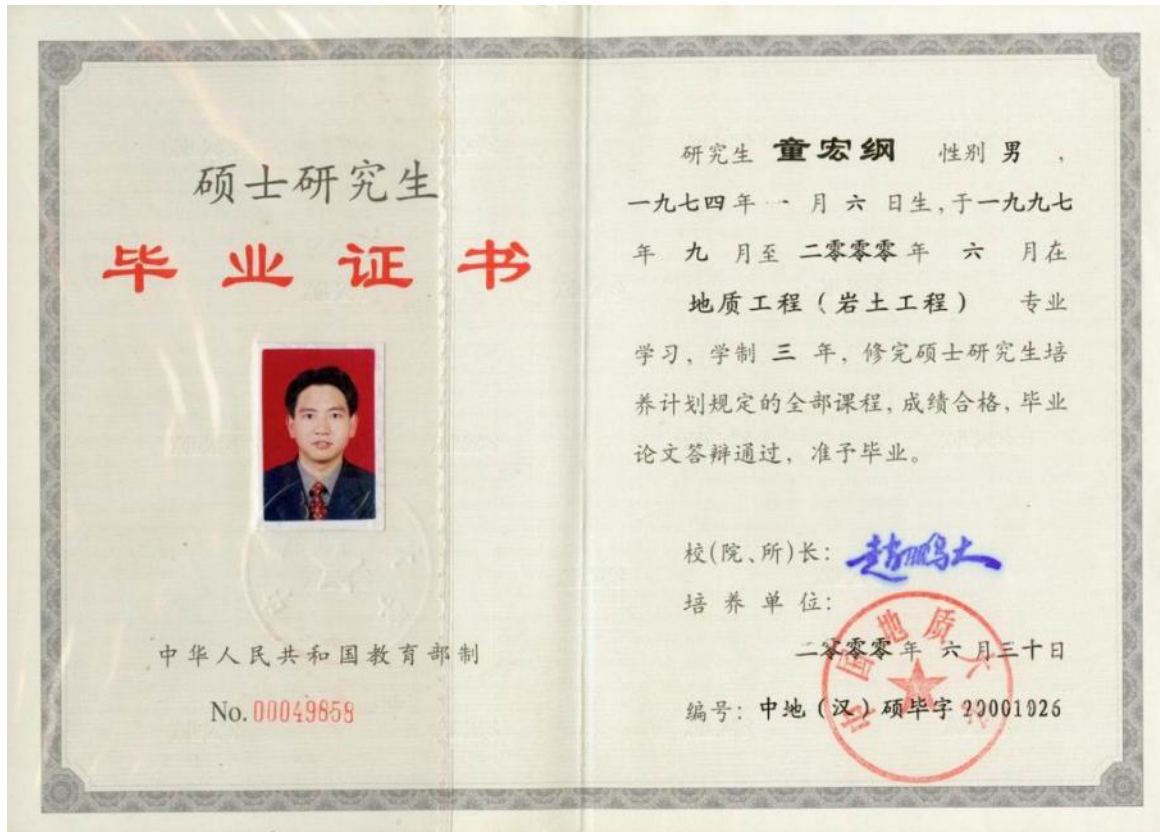 硕士研究生
毕业证书
中华人民共和国教育部制
No. 00049858
研究生 童宏纲 性别 男 ,
一九七四年 一 月 六 日生,于一九九七
年 九 月至 二零零零 年 六 月在
地质工程(岩土工程) 专业
学习, 学制 三 年, 修完硕士研究生培
养计划规定的全部课程, 成绩合格, 毕业
论文答辩通过, 准予毕业。
校(院、所)长: 赵鹏大
培养单位:
中国地质大学
二零零零 年 六 月三十日
编号: 中地(汉)硕毕字 20001026